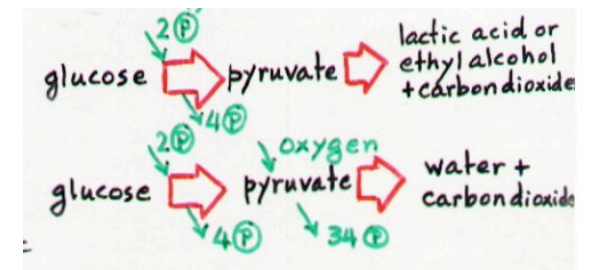 2 P
glucose pyruvate lactic acid or
ethyl alcohol
+carbondioxide
4 P
2 P oxygen
glucose pyruvate water +
carbondioxide
4 P 34 P